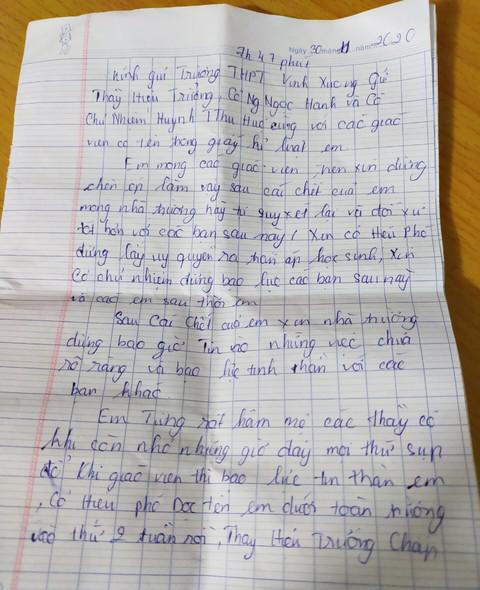 7h 47 phút Ngày 30 tháng 11 năm 2020
kính gửi Trường THPT Vĩnh Xương Gửi
Thầy Hiệu Trưởng, Cô Ng Ngọc Hạnh và Cô
Chủ Nhiệm Huỳnh T Thu Huế cùng với các giáo
viên có tên trong giấy kỉ luật em
Em mong các giáo viên, nên xin đừng
chèn ép lắm vậy sau cái chết của em
mong nhà trường hãy tự suy xét lại và đối xử
tốt hơn với các bạn sau này! Xin cô Hiệu Phó
đừng lấy uy quyền ra đàn áp học sinh, xin
Cô chủ nhiệm đừng bạo lực các bạn sau này
và các em sau thời em
Sau Cái Chết của em xin nhà trường
đừng bao giờ Tin vào những việc chưa
rõ ràng và bạo lực tinh thần với các
bạn khác.
Em Từng rất hâm mộ các thầy cô
khi còn nhỏ nhưng giờ đây mọi thứ sụp
đổ Khi giáo viên thì bạo lực tin thần em
, Cô Hiệu phó Đọc tên em dưới toàn trường
vào thứ 2 tuần rồi, Thầy Hiệu Trưởng Chấp